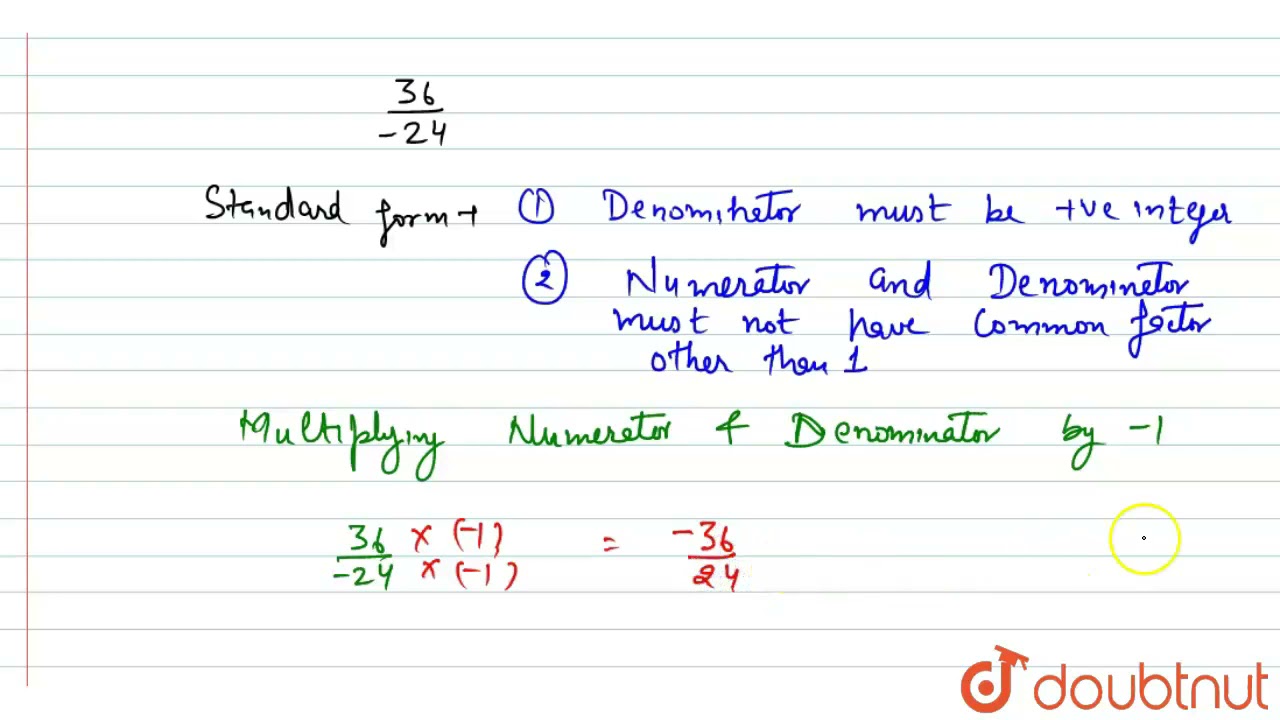 36
-24
Standard form → ① Denominator must be +ve integer
② Numerator and Denominator
must not have common factor
other than 1
Multiplying Numerator & Denominator by -1
36 × (-1) = -36
-24 × (-1) 24
doubtnut